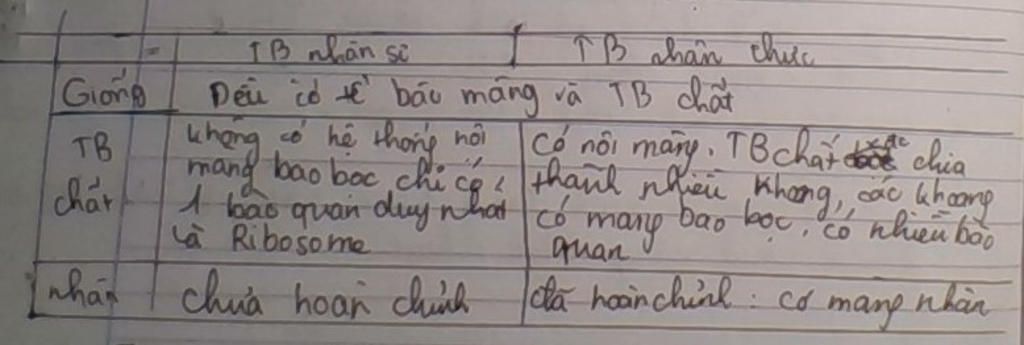 TB nhân sơ TB nhân thực
Giống Đều có tế bào màng và TB chất
TB chất
không có hệ thống nội
màng bao bọc chỉ có
1 bào quan duy nhất
là Ribosome
Có nội màng, TB chất đc chia
thành nhiều khoang, các khoang
có màng bao bọc, có nhiều bào
quan
nhân chưa hoàn chỉnh đã hoàn chỉnh: có màng nhân